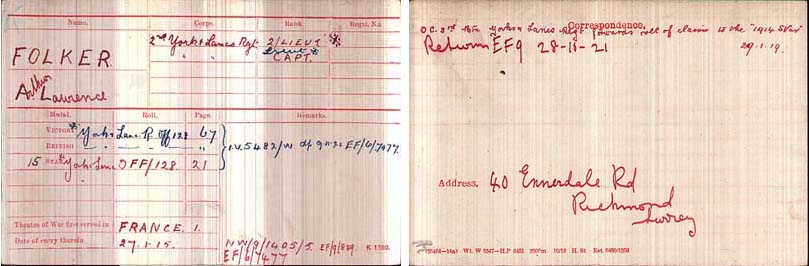 Name. Corps. Rank. Regtl. No.
FOLKER. 2nd York & Lancs Regt. 2/LIEUT *
" " CAPT.
Arthur
A. Lawrence
Medal. Roll. Page. Remarks.
VICTORY * York & Lanc R. Off 128 67
BRITISH " " " "
I.V. 5482/W EF/6/7477
15 STAR York & Lanc OFF/128. 21
Theatre of War first served in FRANCE. 1.
Date of entry therein 27.1.15.
NW/9/1405/5. K 1380.
EF/6/7477
Correspondence.
O.C. 3rd Bn York & Lancs Regt forwards roll of claim to the "1914 Star
29.1.19.
Return EF9 28-10-21
Address. 40 Ennerdale Rd
Richmond
Surrey